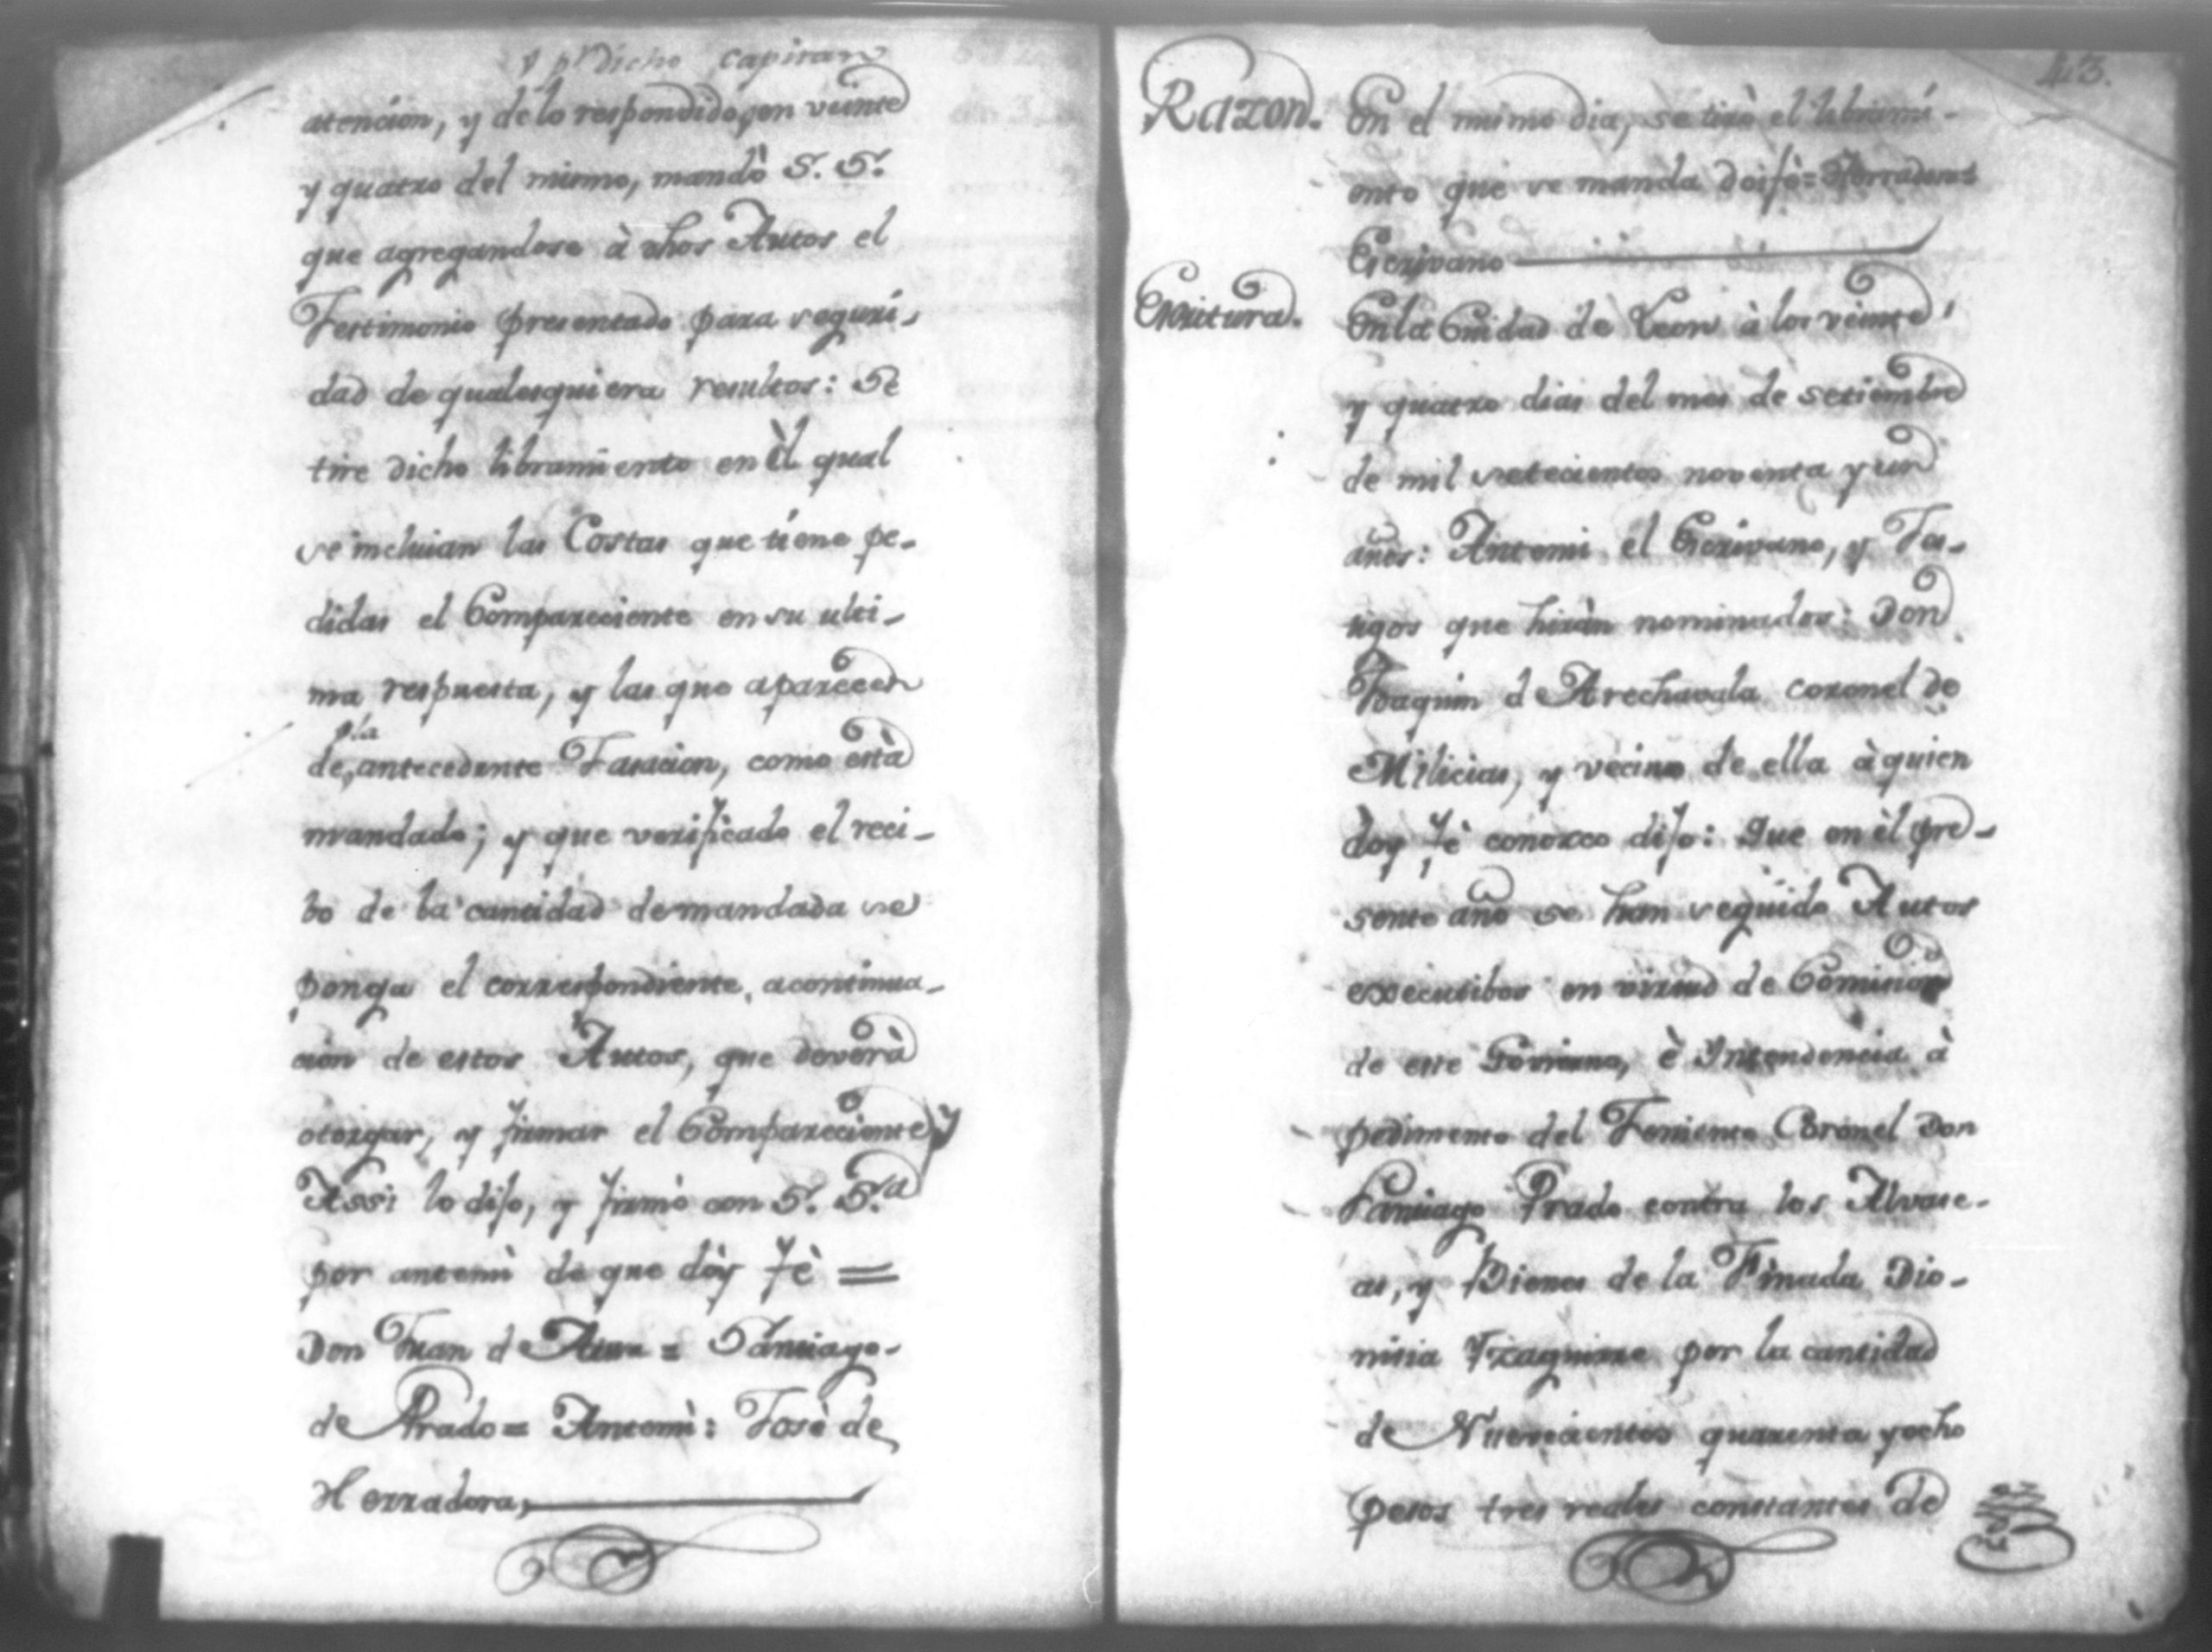 y pr dicho capitan
atencion, y de lo respondido, en veinte
y quatro del mismo, mandò S. S.
que agregandose à dhos Autos el
Testimonio presentado para seguri-
dad de qualesquiera resultos: Se
tire dicho libramiento en èl qual
se incluian las Costas que tiene pe-
didas el Compareciente en su ulti-
ma respuesta, y las que aparecen
pla
de, antecedente Tasacion, como està
mandado; y que verificado el reci-
bo de la cantidad demandada se
ponga el correspondiente, acontinua-
cion de estos Autos, que deverà
otorgar, y firmar el Compareciente, y
Assi lo dijo, y firmò con S. S.a
por antemi de que dòy fè =
Don Juan de = Santiago-
de Prado = Antemi: Josè de
Herradora,
43.
Razon. En el mismo dia, se tirò el librami-
ento que se manda =
Escrivano
Escritura. En la Cuidad de Leon à los veinte
y quatro dias del mes de setiembre
de mil setecientos noventa y un
años: Antemi el Escrivano, y Tes-
tigos que hiràn nominados: Don
Joaquin de Arechavala coronel de
Milicias, y vecino de ella à quien
doy fè conozco dijo: Que en èl pre-
sente año se han seguido Autos
execcutibos en virtud de Comision
de este Govierno, è Intendencia à
pedimento del Teniente Coronel Don
Santiago Prado contra los Alvace-
as, y Bienes de la Finada Dio-
nisia Yzaguirre por la cantidad
de Nuevecientos quarenta y ocho
pesos tres reales constantes de